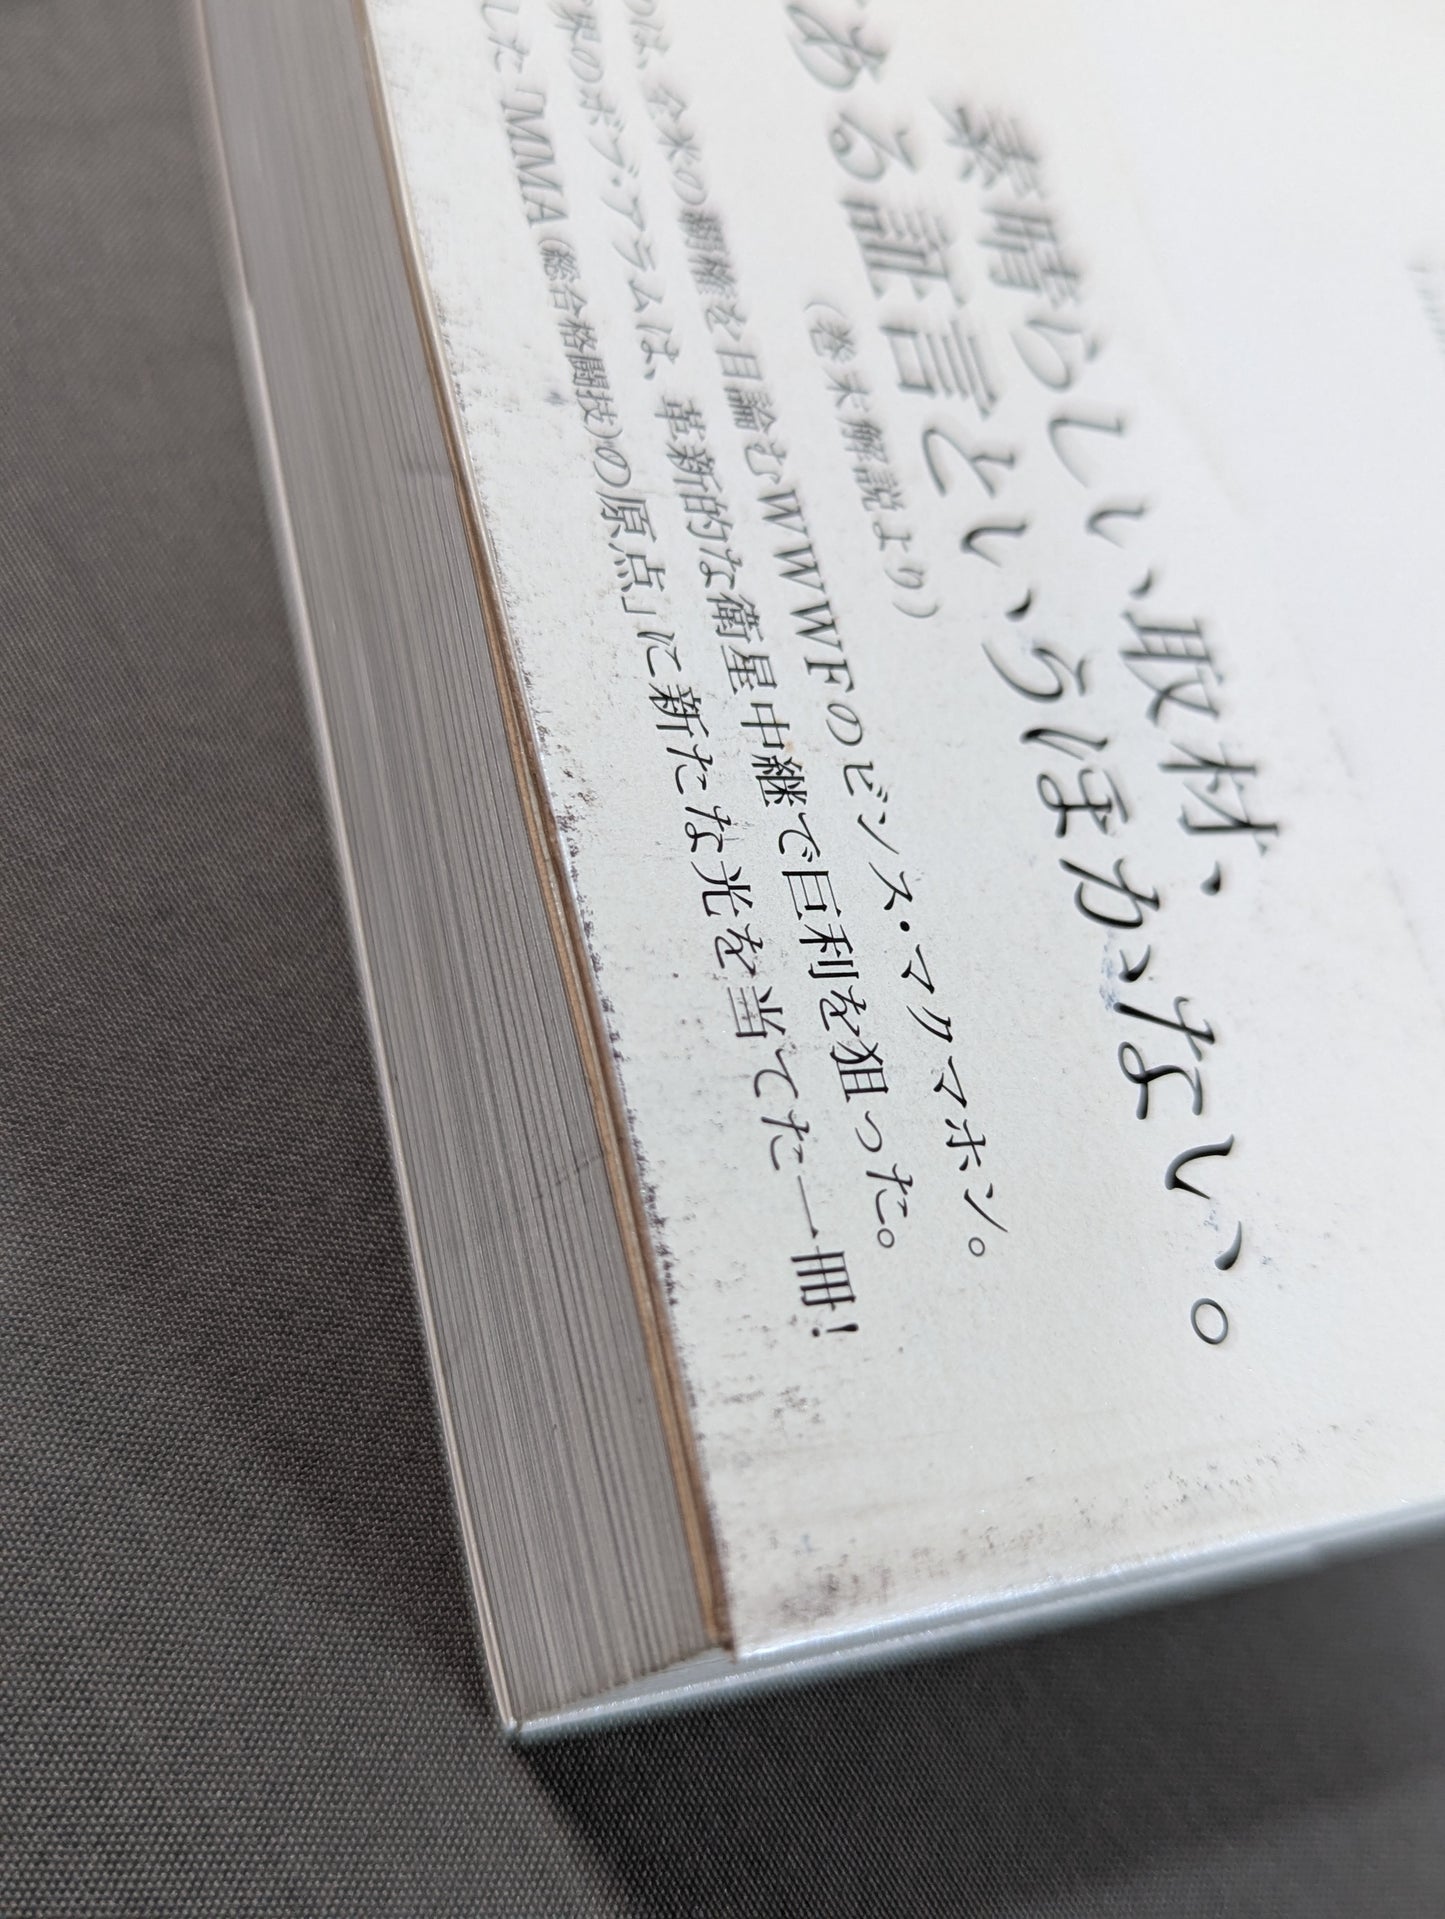 素晴らしい取材、
ある証言というほかない。
(巻末解説より)
のは、全米の覇権を目論むWWWFのビンス・マクマホン。
界のボブ・アラムは、革新的な衛星中継で巨利を狙った。
した「MMA(総合格闘技)の原点」に新たな光を当てた一冊!